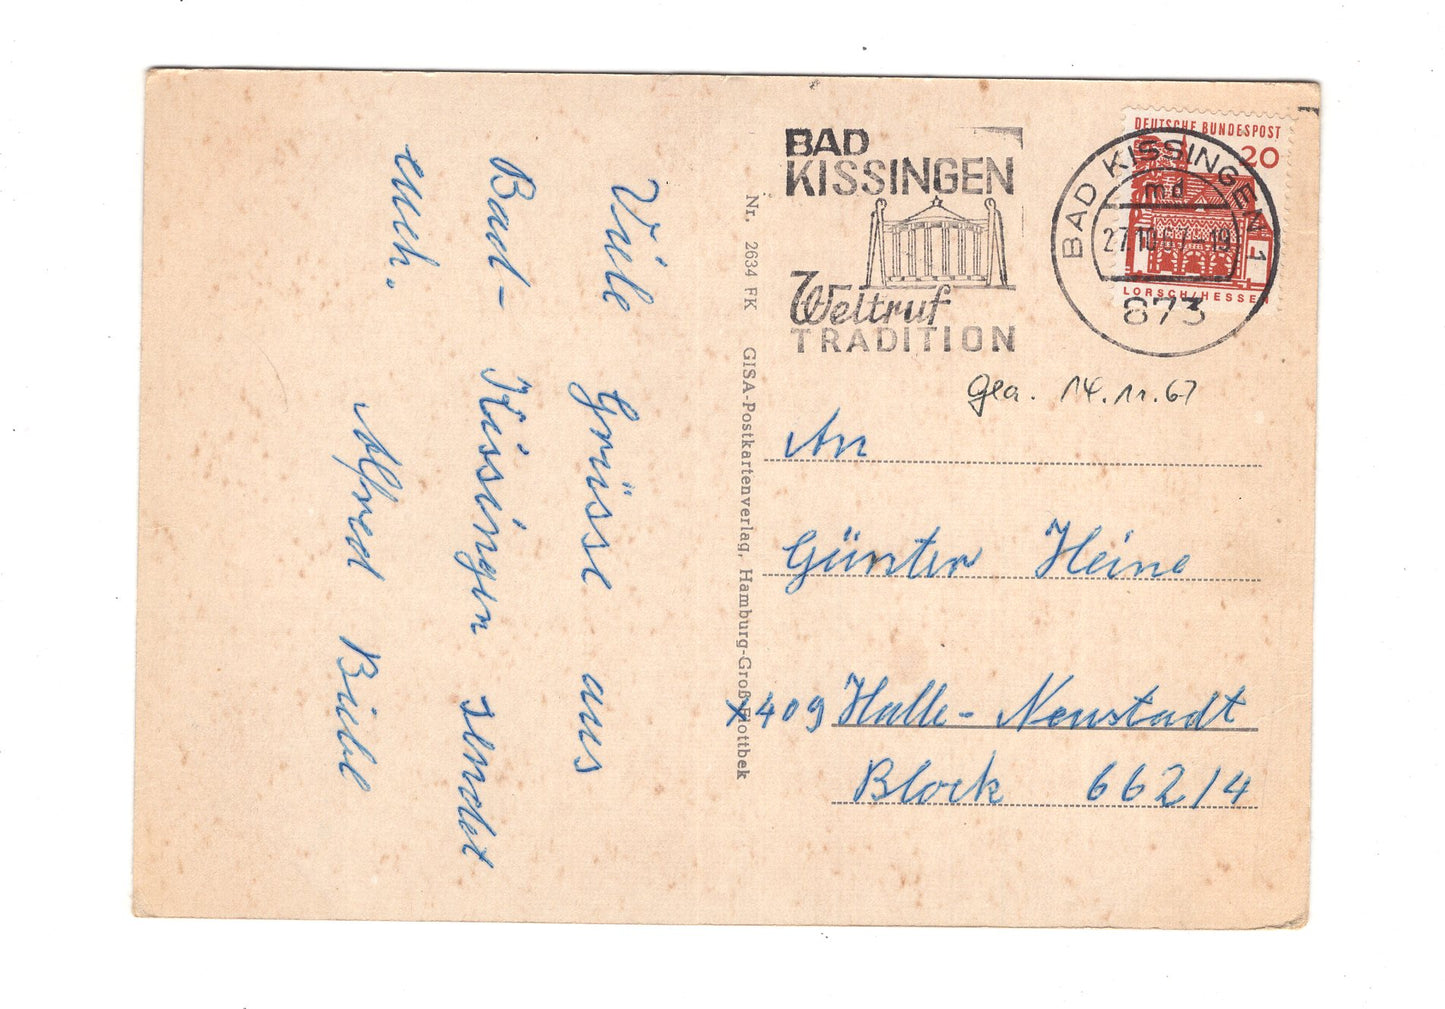 Viele Grüsse aus
Bad-Kissingen sendet
euch.
Alfred Biele
Nr. 2634 FK GISA-Postkartenverlag, Hamburg-Groß Flottbek
BAD
KISSINGEN
Weltruf
TRADITION
BAD KISSINGEN 1
md
27.10.67-19
873
DEUTSCHE BUNDESPOST
20
LORSCH/HESSEN
14.11.67
An
Günter Heine
x409 Halle-Neustadt
Block 662/4